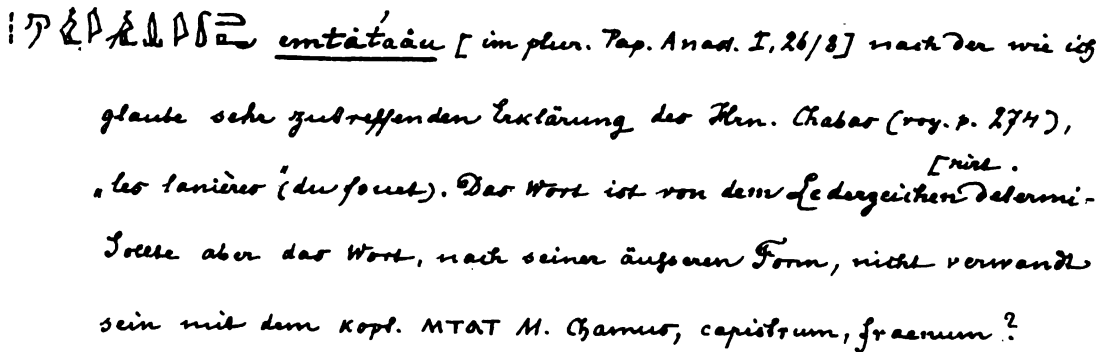 emtátaáu [im plur. Pap. Anast. I, 26/8] nach der wie ich
glaube sehr zutreffenden Erklärung des Hrn. Chabas (voy. p. 274),
„les lanières“ (du fouet). Das Wort ist von dem Lederzeichen determi-
[nirt.
Sollte aber das Wort, nach seiner äußeren Form, nicht verwandt
sein mit dem Kopt. ⲙⲧⲁⲧ M. Chamus, capistrum, fraenum?